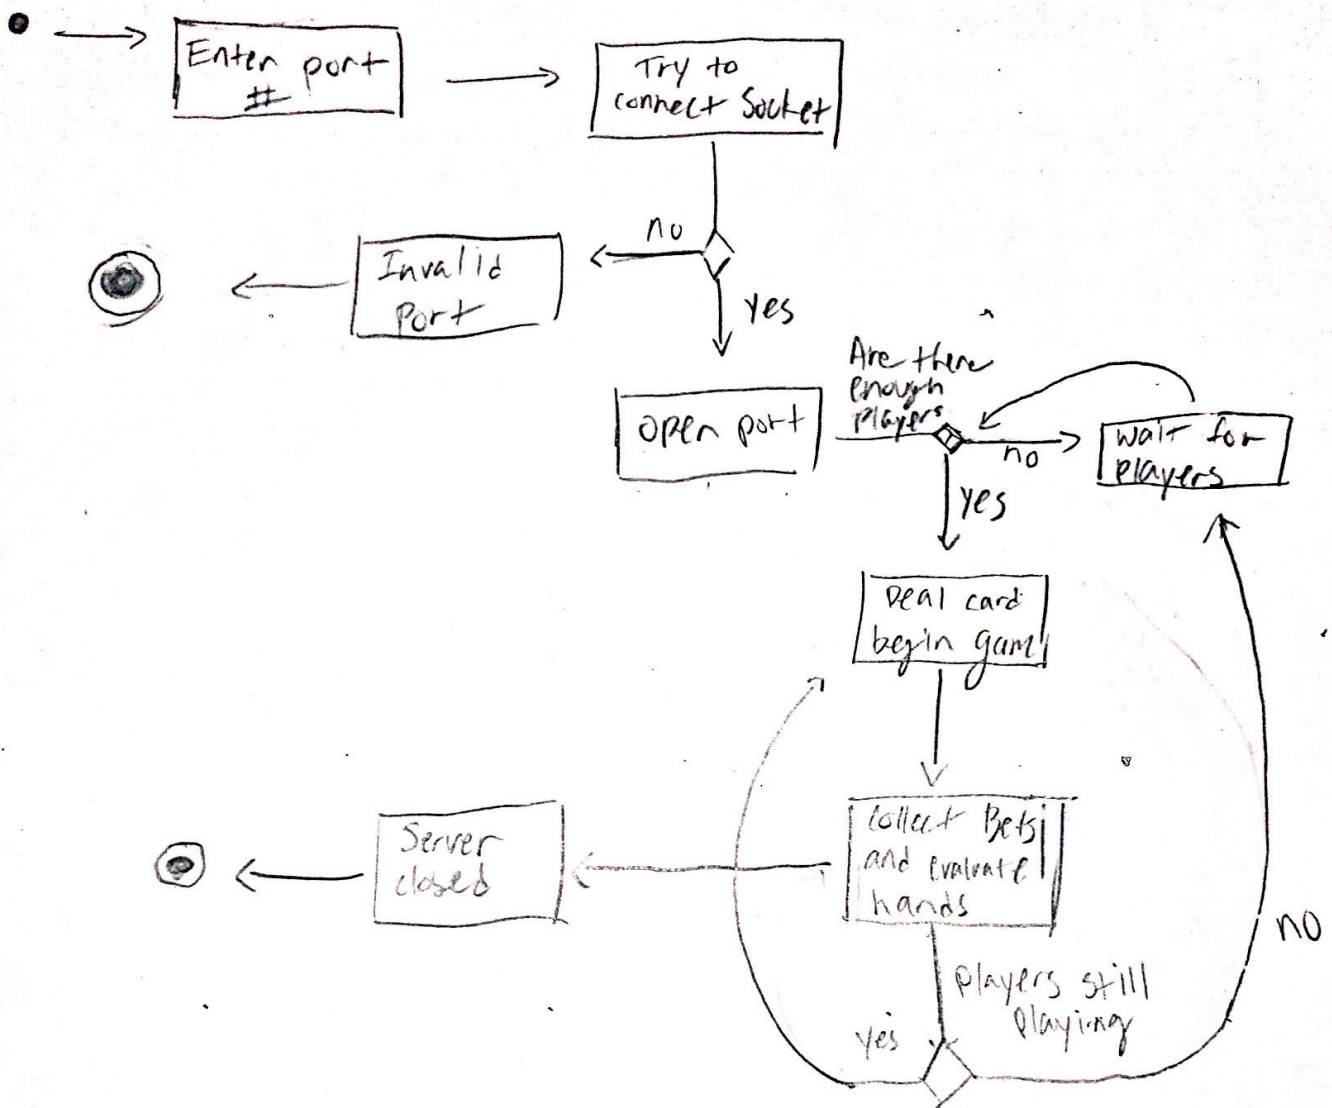 Enter port
#
Try to
connect Socket
no
Invalid
Port
yes
Are there
enough
players
open port
no
wait for
players
yes
Deal card
begin gam
Collect Bets
and evaluate
hands
Server
closed
no
players still
playing
yes